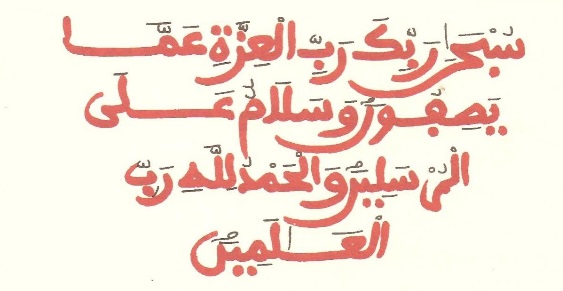 سُبْحَٰنَ رَبِّكَ رَبِّ الْعِزَّةِ عَمَّا
يَصِفُونَ وَسَلَامٌ عَلَى
الْمُرْسَلِينَ وَالْحَمْدُ لِلَّهِ رَبِّ
الْعَٰلَمِينَ